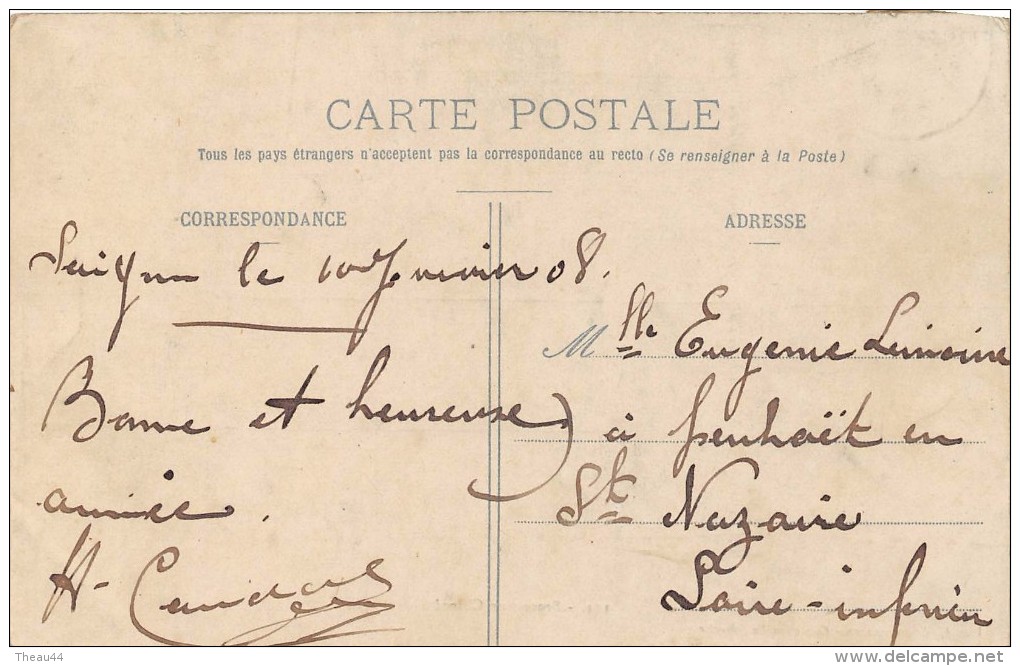 CARTE POSTALE
Tous les pays étrangers n'acceptent pas la correspondance au recto (Se renseigner à la Poste)
CORRESPONDANCE
ADRESSE
Saigon le 10 Janvier 08.
Mlle Eugenie Lemoine
Bonne et heureuse
à penhoët en
année.
St Nazaire
H-
Loire-inferieu
Theau44
www.delcampe.net